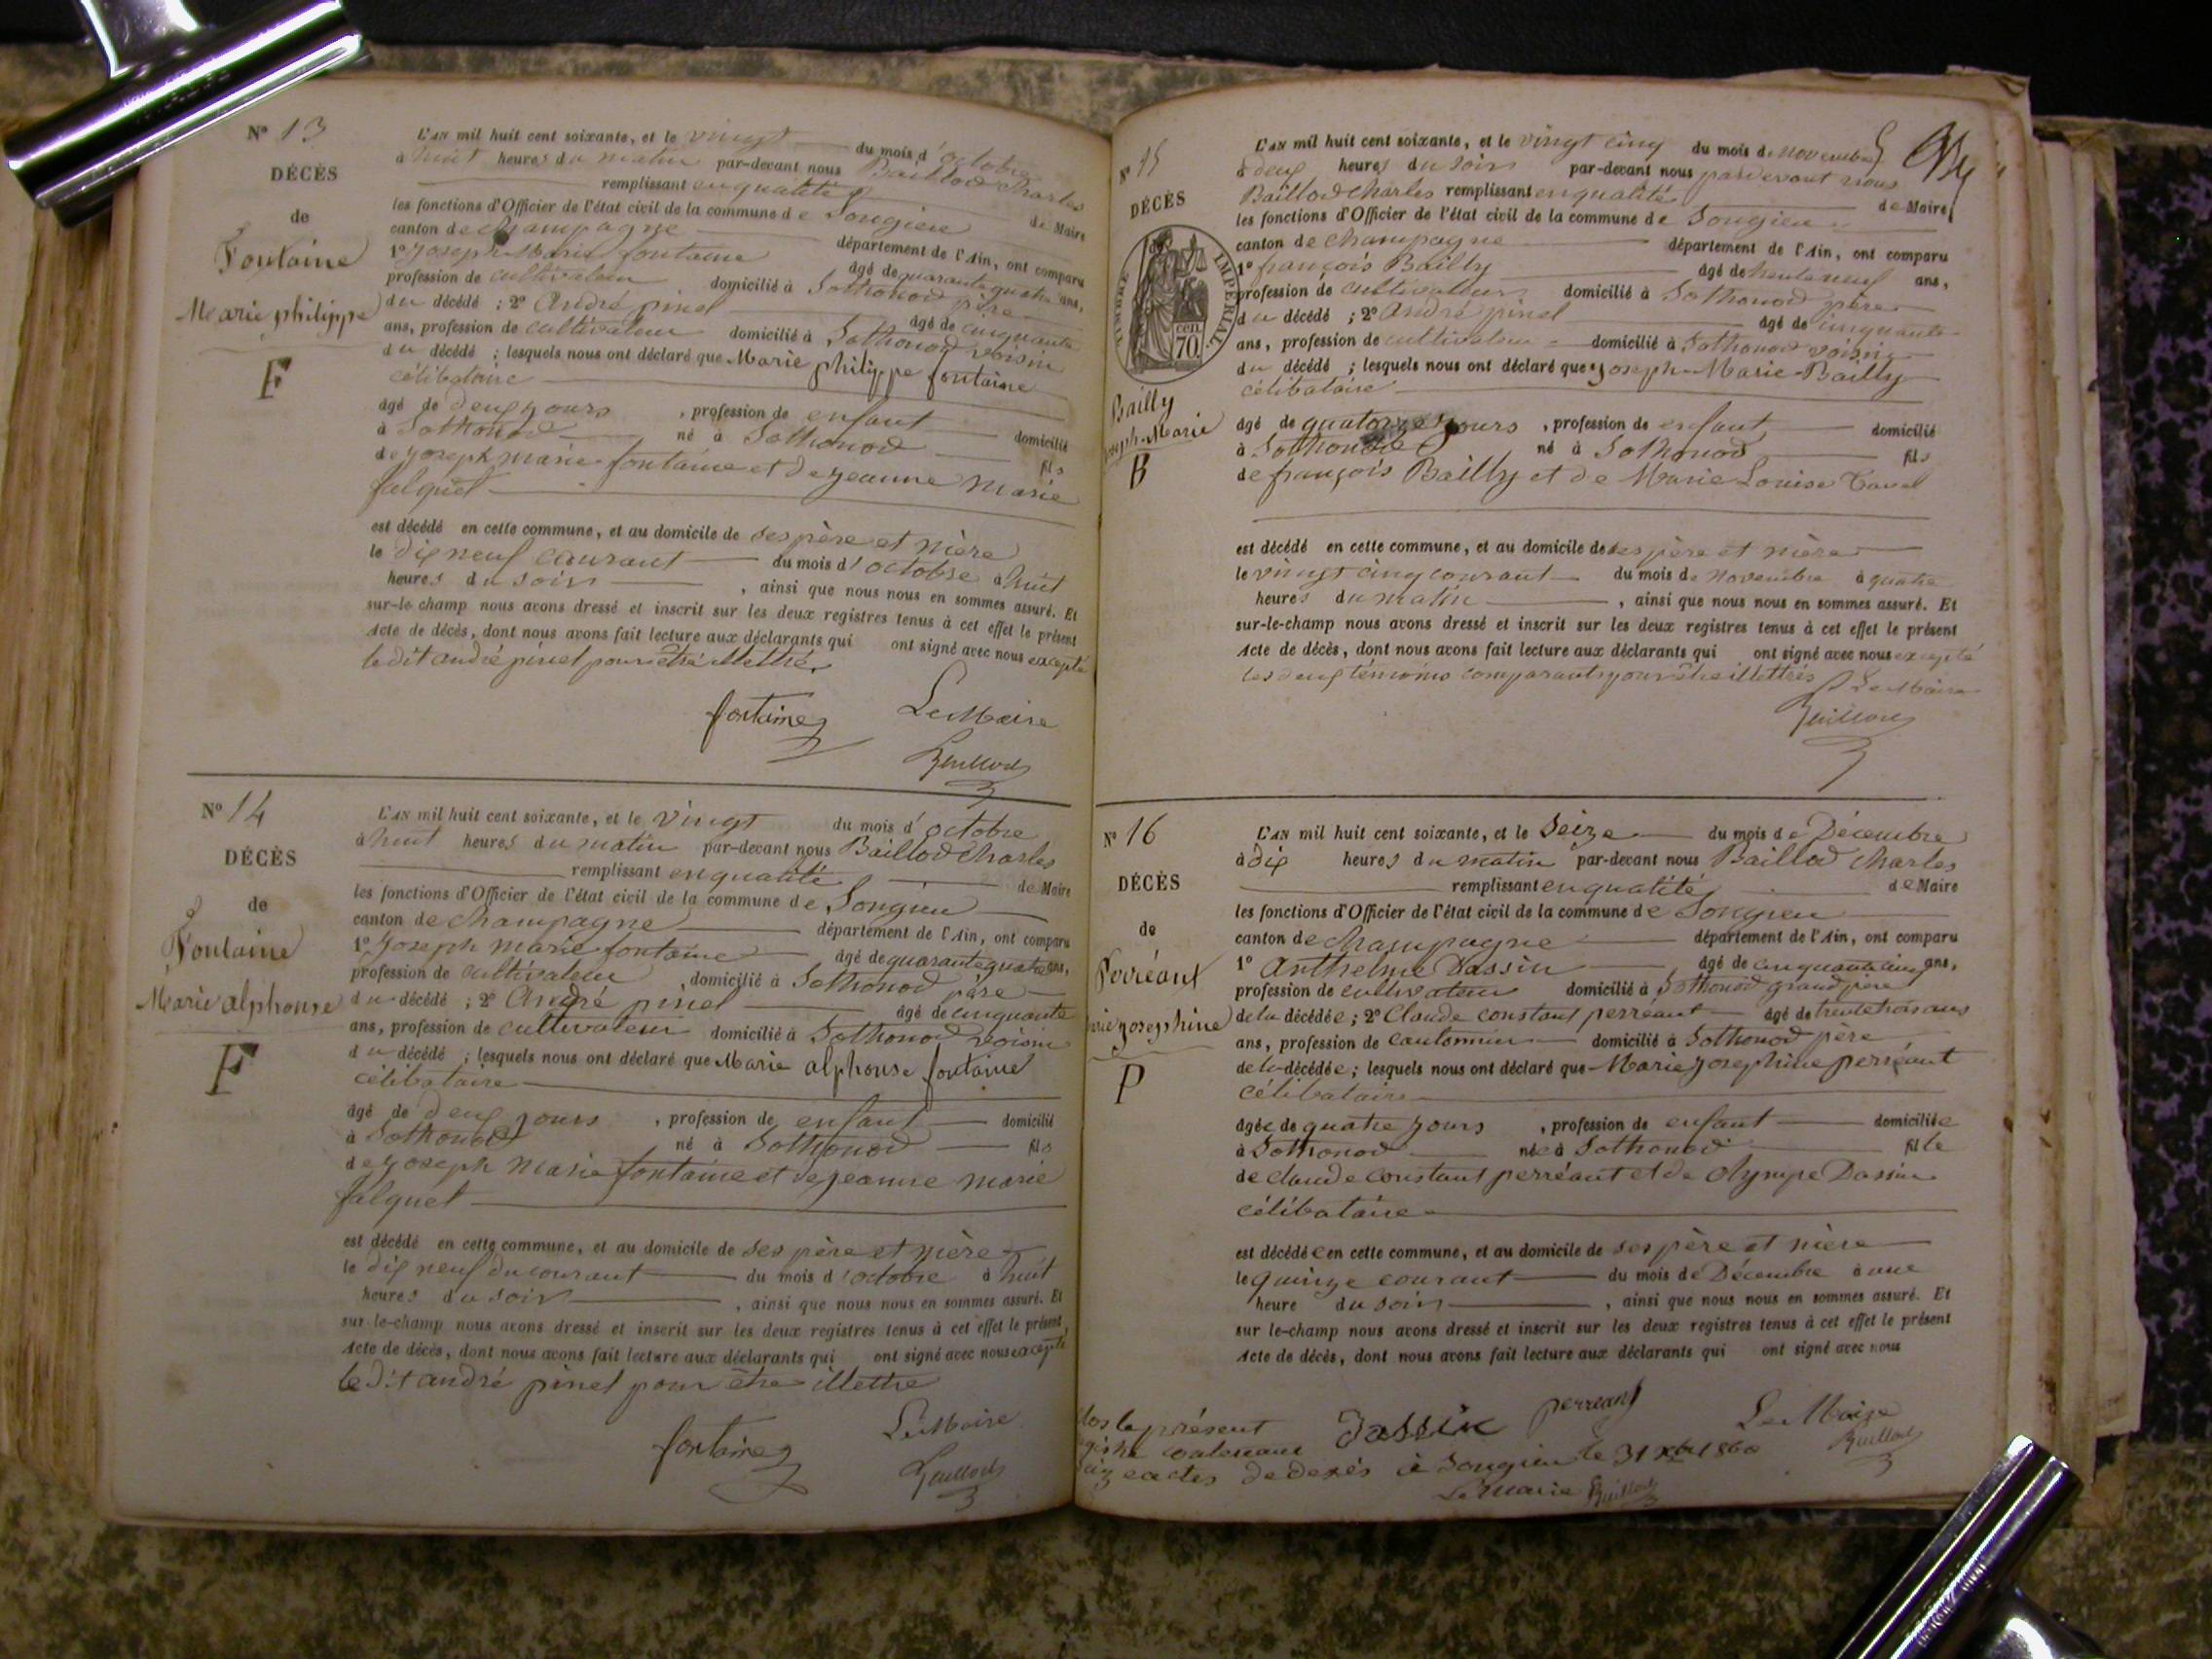 N° 13
DÉCÈS
de
Fontaine
Marie philippe
F
L'AN mil huit cent soixante, et le vingt du mois d'octobre
à huit heures du matin par-devant nous Baillod Charles
remplissant en qualité de Maire
les fonctions d'Officier de l'état civil de la commune de Songieu
canton de champagne département de l'Ain, ont comparu
1° Joseph Marie fontaine âgé de quarante quatre ans,
profession de cultivateur domicilié à Sothonod père
du décédé ; 2° André pinel âgé de cinquante
ans, profession de cultivateur domicilié à Sothonod voisin
du décédé ; lesquels nous ont déclaré que Marie philippe fontaine
célibataire
âgé de deux jours , profession de enfant domicilié
à Sothonod né à Sothonod fils
de joseph marie fontaine et de jeanne marie
falquet
est décédé en cette commune, et au domicile de ses père et mère
le dix neuf courant du mois d'octobre à huit
heures du soir , ainsi que nous nous en sommes assuré. Et
sur-le-champ nous avons dressé et inscrit sur les deux registres tenus à cet effet le présent
Acte de décès, dont nous avons fait lecture aux déclarants qui ont signé avec nous excepté
le dit andré pinel pour être illettré
fontaine Le Maire
Baillod
N° 14
DÉCÈS
de
Fontaine
Marie alphonse
F
L'AN mil huit cent soixante, et le vingt du mois d'octobre
à huit heures du matin par-devant nous Baillod Charles
remplissant en qualité de Maire
les fonctions d'Officier de l'état civil de la commune de Songieu
canton de champagne département de l'Ain, ont comparu
1° Joseph marie fontaine âgé de quarante quatre ans,
profession de cultivateur , domicilié à Sothonod père
du décédé ; 2° André pinel âgé de cinquante
ans, profession de cultivateur domicilié à Sothonod voisin
du décédé ; lesquels nous ont déclaré que Marie alphonse fontaine
célibataire
âgé de deux jours , profession de enfant domicilié
à Sothonod né à Sothonod fils
de joseph Marie fontaine et de jeanne marie
falquet
est décédé en cette commune, et au domicile de ses père et mère
le dix neuf du courant du mois d'octobre à huit
heures du soir , ainsi que nous nous en sommes assuré. Et
sur-le-champ nous avons dressé et inscrit sur les deux registres tenus à cet effet le présent
Acte de décès, dont nous avons fait lecture aux déclarants qui ont signé avec nous excepté
le dit andré pinel pour être illettré
fontaine Le Maire
Baillod
N° 15
DÉCÈS
TIMBRE IMPÉRIAL
70 cen
Bailly
joseph-Marie
B
L'AN mil huit cent soixante, et le vingt cinq du mois de novembre
à deux heures du soir par-devant nous pardevant nous
Baillod Charles remplissant en qualité de Maire
les fonctions d'Officier de l'état civil de la commune de Songieu
canton de champagne département de l'Ain, ont comparu
1° françois Bailly âgé de trente neuf ans,
profession de cultivateur domicilié à Sothonod père
du décédé ; 2° André pinel âgé de cinquante
ans, profession de cultivateur domicilié à Sothonod voisin
du décédé ; lesquels nous ont déclaré que joseph-Marie-Bailly
célibataire
âgé de quatorze jours , profession de enfant domicilié
à Sothonod né à Sothonod fils
de françois Bailly et de Marie Louise
est décédé en cette commune, et au domicile de ses père et mère
le vingt cinq courant du mois de novembre à quatre
heures du matin , ainsi que nous nous en sommes assuré. Et
sur-le-champ nous avons dressé et inscrit sur les deux registres tenus à cet effet le présent
Acte de décès, dont nous avons fait lecture aux déclarants qui ont signé avec nous excepté
les deux témoins comparants pour être illettrés Le Maire
Baillod
N° 16
DÉCÈS
de
Perréant
Marie josephine
P
L'AN mil huit cent soixante, et le Seize du mois de Décembre
à dix heures du matin par-devant nous Baillod Charles
remplissant en qualité de Maire
les fonctions d'Officier de l'état civil de la commune de Songieu
canton de Champagne département de l'Ain, ont comparu
1° Anthelme Dassin âgé de cinquante cinq ans,
profession de cultivateur domicilié à Sothonod grand père
de la décédée ; 2° Claude constant perréant âgé de trente trois ans
ans, profession de cantonnier domicilié à Sothonod père
de la décédée ; lesquels nous ont déclaré que Marie josephine perréant
célibataire
âgée de quatre jours , profession de enfant domiciliée
à Sothonod née à Sothonod fille
de claude constant perréant et de Olympe Dassin
célibataire
est décédée en cette commune, et au domicile de ses père et mère
le quinze courant du mois de Décembre à une
heure du soir , ainsi que nous nous en sommes assuré. Et
sur le-champ nous avons dressé et inscrit sur les deux registres tenus à cet effet le présent
Acte de décès, dont nous avons fait lecture aux déclarants qui ont signé avec nous
Dassin perreant Le Maire
Baillod
Clos le présent
registre contenant
seize actes de decès à Songieu le 31 Xbre 1860
Le Maire Baillod